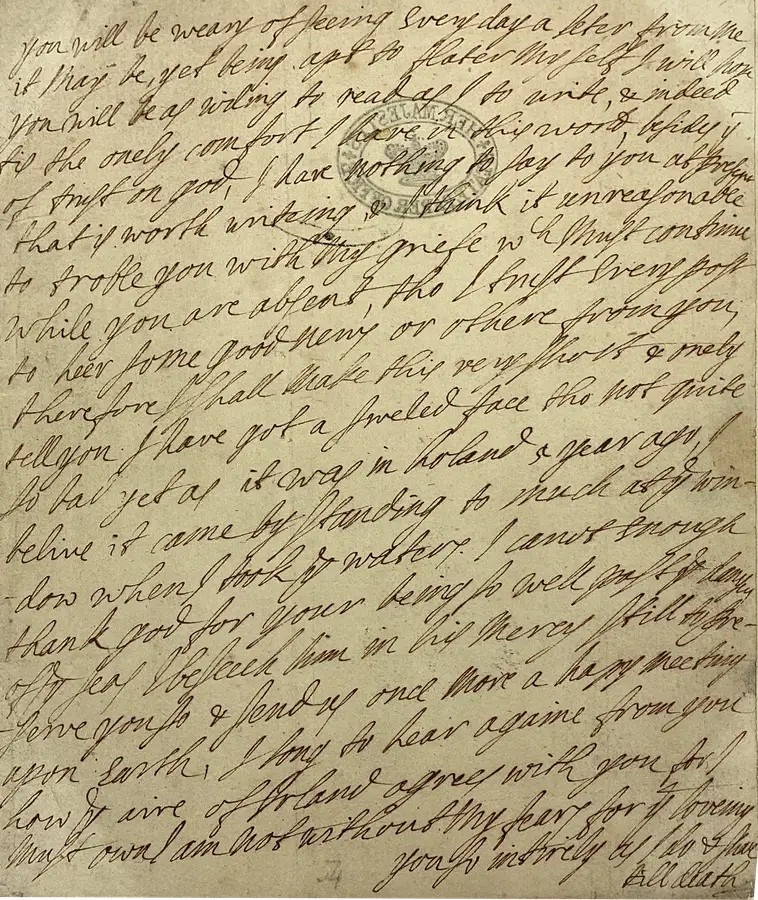 you will be weary of seeing Every day a leter from me
it may be, yet being apt to flater my self I will hope
you will be as wiling to read as I to write, & indeed
tis the onely comfort I have in this word, besids yt
of trust on god, I have nothing to say to you at present
that is worth writeing, & I think it unreasonable
to troble you with my griefe wch must continue
while you are absent, tho I trust Every post
to heer some good news or other from you,
therefore I shall make this very short & onely
tell you I have got a sweled face tho not quite
so bad yet as it was in holand 5 year ago, I
belive it came by standing to much at ye win-
-dow when I took ye waters. I canot Enough
thank god for your being so well past ye dangers
of ye seas I beseech him in his mercy still to pre-
-serve you so & send us once more a hapy meeting
upon Earth, I long to hear againe from you
how ye aire of Irland agrees with you for I
must own I am not without my fears for yt loveing
you so intirely as I do & shall
till death